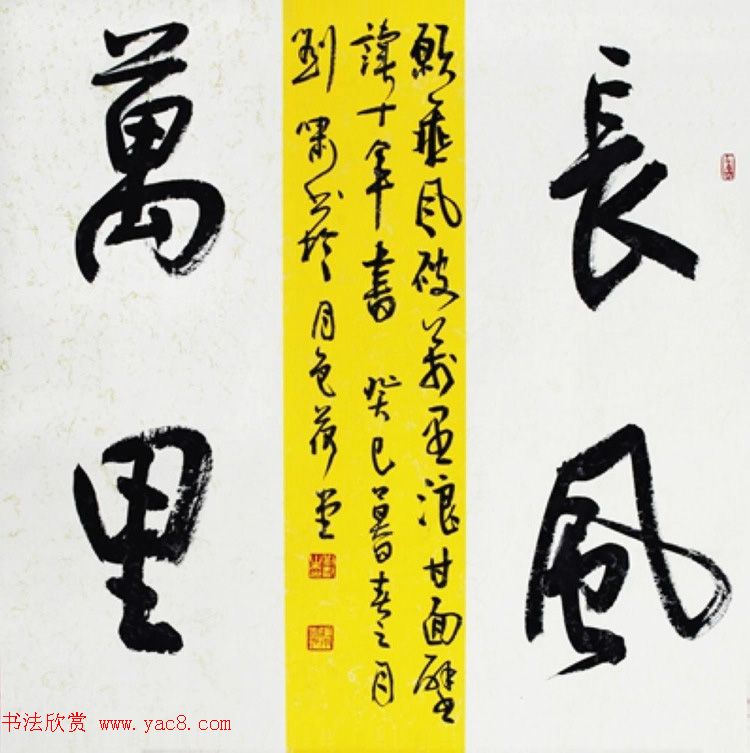 長風
願乘風破萬里浪甘面壁
讀十年書 癸巳暮春之月
劉嘯书於月色荷堂
萬里
书法欣赏 www.yac8.com